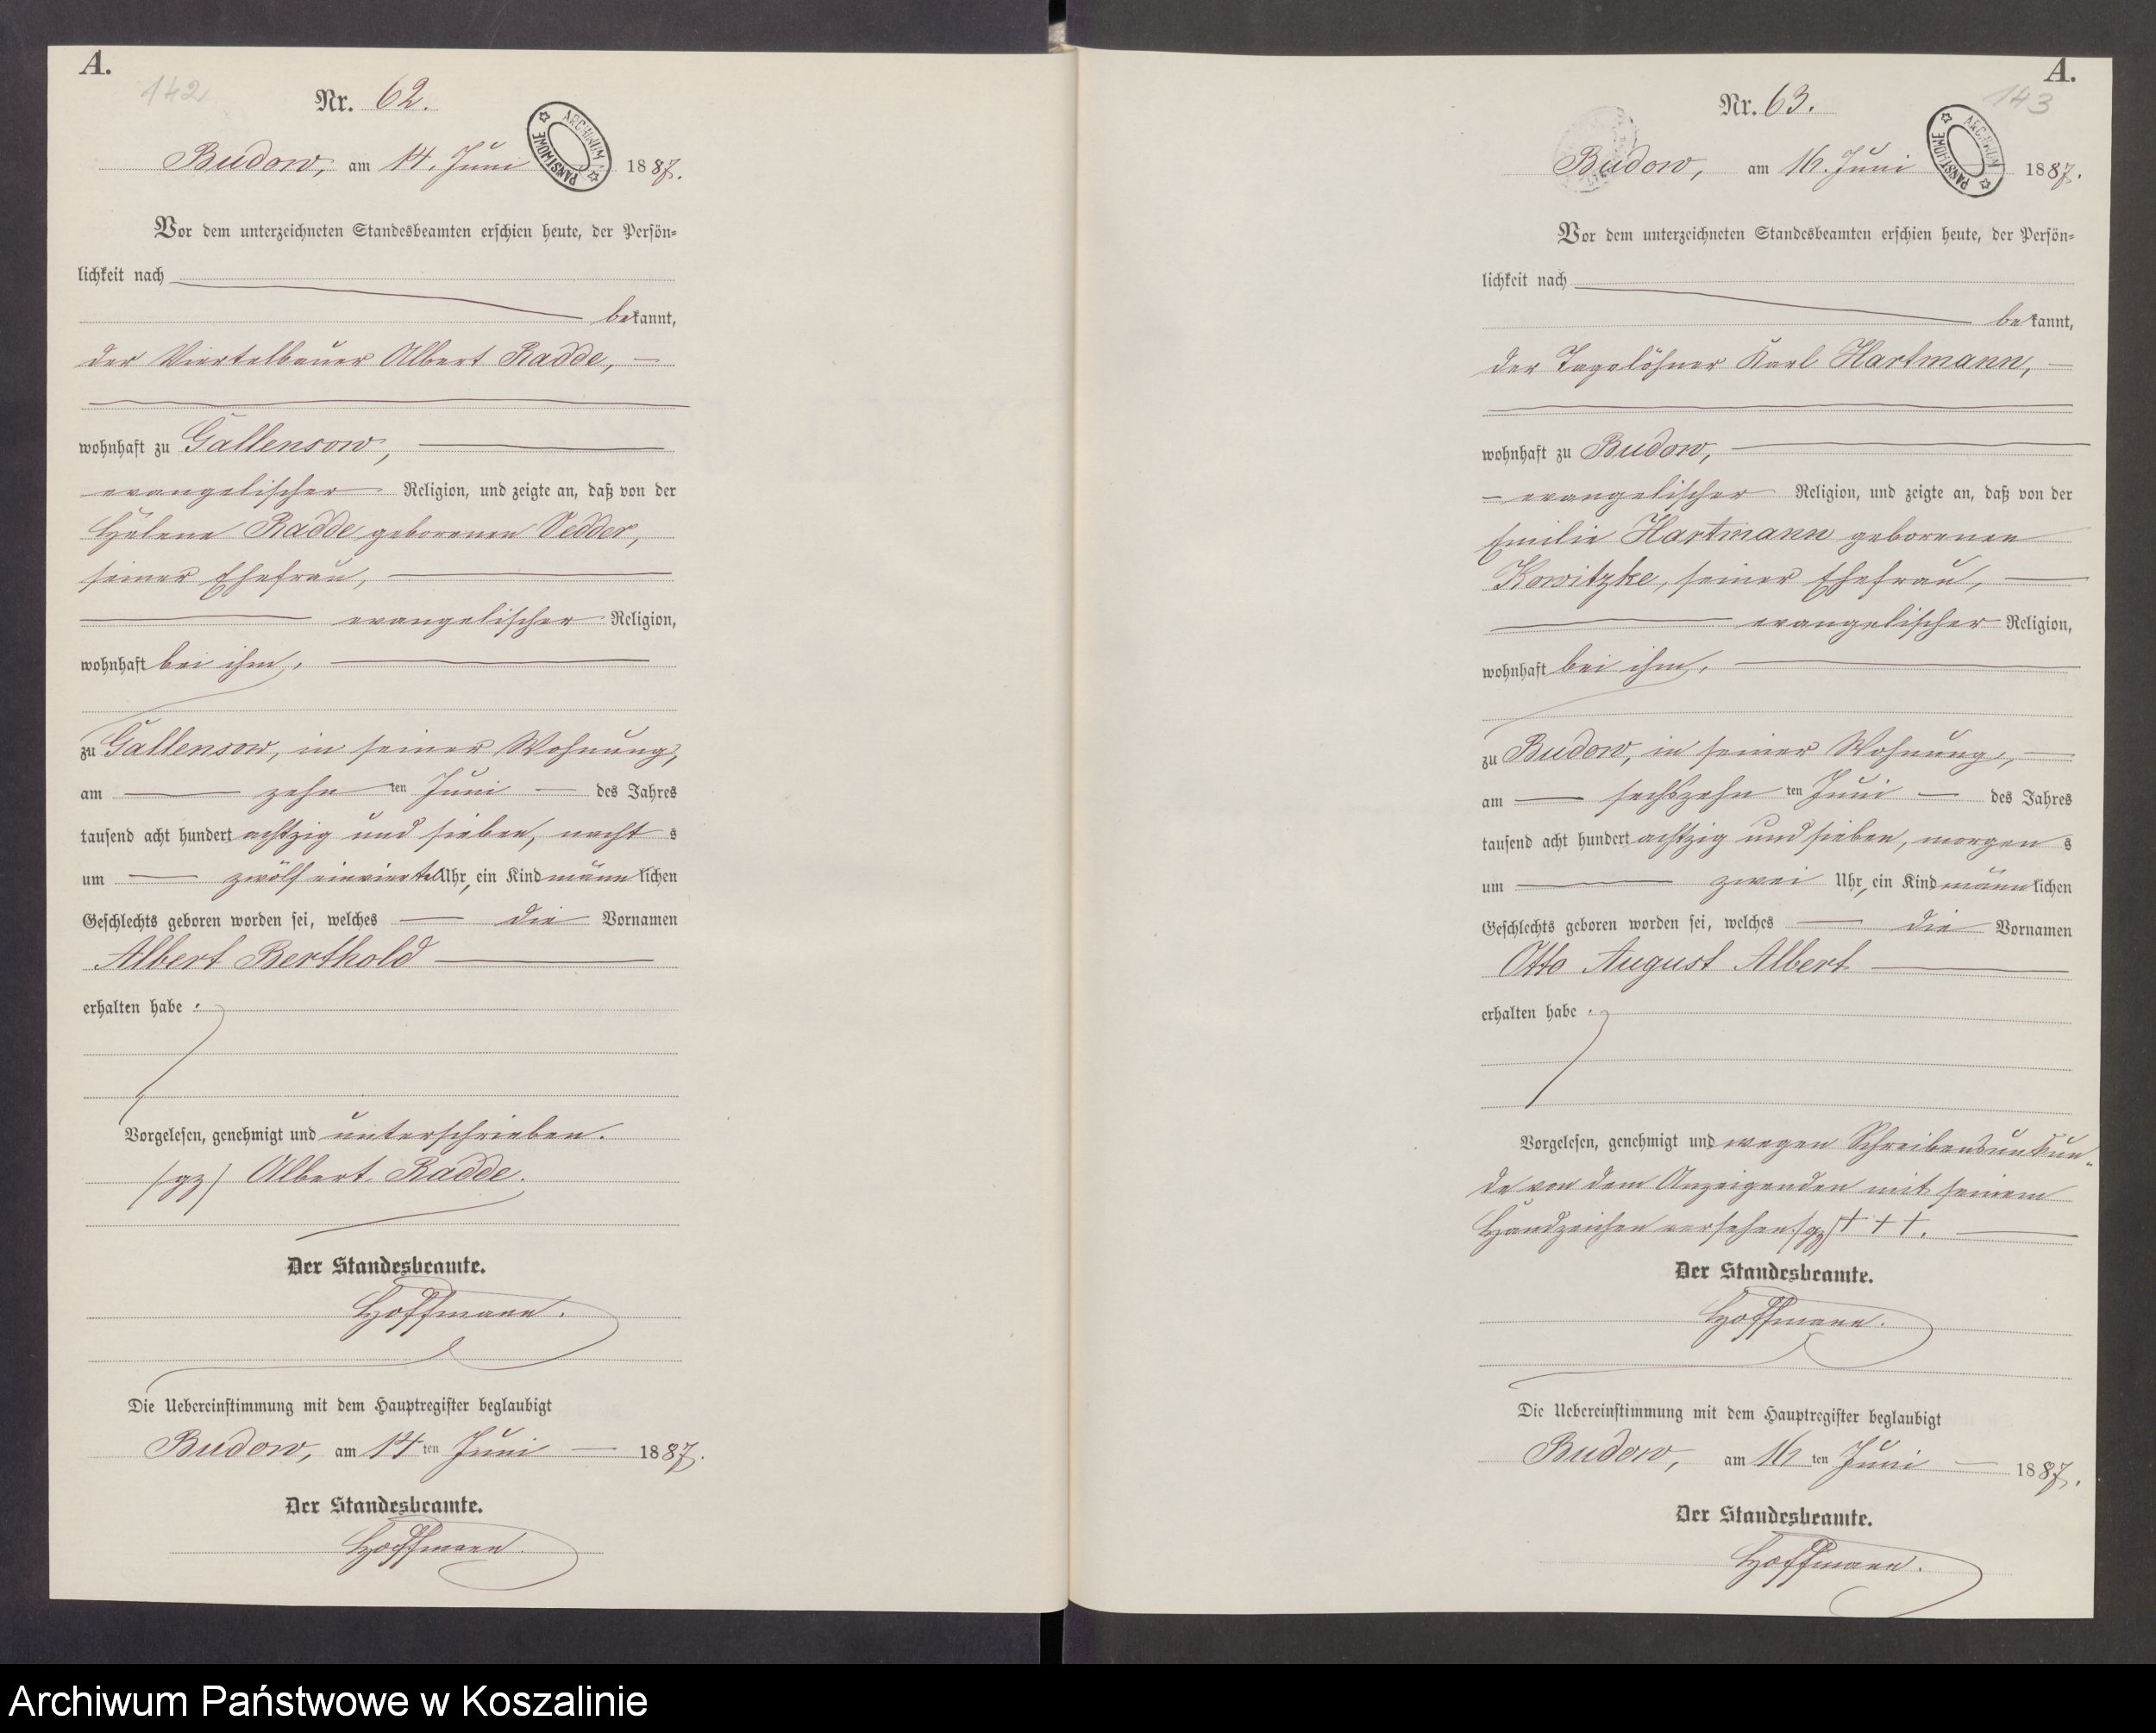 A.
142
Nr. 62.
ARCHIWUM PAŃSTWOWE
Budow, am 14. Juni 1887.
Vor dem unterzeichneten Standesbeamten erschien heute, der Persön=
lichkeit nach
bekannt,
der Viertelbauer Albert Radde,
wohnhaft zu Gallensow,
evangelischer Religion, und zeigte an, daß von der
Helene Radde geborenen Vedder,
seiner Ehefrau,
evangelischer Religion,
wohnhaft bei ihm,
zu Gallensow, in seiner Wohnung,
am zehn ten Juni des Jahres
tausend acht hundert achtzig und sieben, nacht s
um zwölf einviertel Uhr, ein Kind männlichen
Geschlechts geboren worden sei, welches die Vornamen
Albert Berthold
erhalten habe.
Vorgelesen, genehmigt und unterschrieben.
(gz) Albert Radde.
Der Standesbeamte.
Hoffmann.
Die Uebereinstimmung mit dem Hauptregister beglaubigt
Budow, am 14 ten Juni 1887.
Der Standesbeamte.
Hoffmann.
A.
143
Nr. 63.
ARCHIWUM PAŃSTWOWE
Budow, am 16. Juni 1887.
Vor dem unterzeichneten Standesbeamten erschien heute, der Persön=
lichkeit nach
bekannt,
der Tagelöhner Karl Hartmann,
wohnhaft zu Budow,
evangelischer Religion, und zeigte an, daß von der
Emilie Hartmann geborenen
Kowitzke, seiner Ehefrau,
evangelischer Religion,
wohnhaft bei ihm,
zu Budow, in seiner Wohnung,
am sechszehn ten Juni des Jahres
tausend acht hundert achtzig und sieben, morgen s
um zwei Uhr, ein Kind männlichen
Geschlechts geboren worden sei, welches die Vornamen
Otto August Albert
erhalten habe.
Vorgelesen, genehmigt und wegen Schreibensunkun=
de von dem Anzeigenden mit seinem
Handzeichen versehen. (gz) + + +.
Der Standesbeamte.
Hoffmann.
Die Uebereinstimmung mit dem Hauptregister beglaubigt
Budow, am 16 ten Juni 1887.
Der Standesbeamte.
Hoffmann.
Archiwum Państwowe w Koszalinie